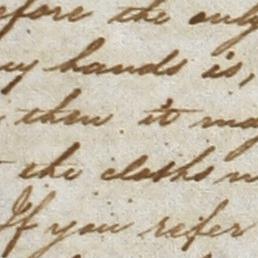 efore the only
my hands is,
then it ma
the cloths
If you refer